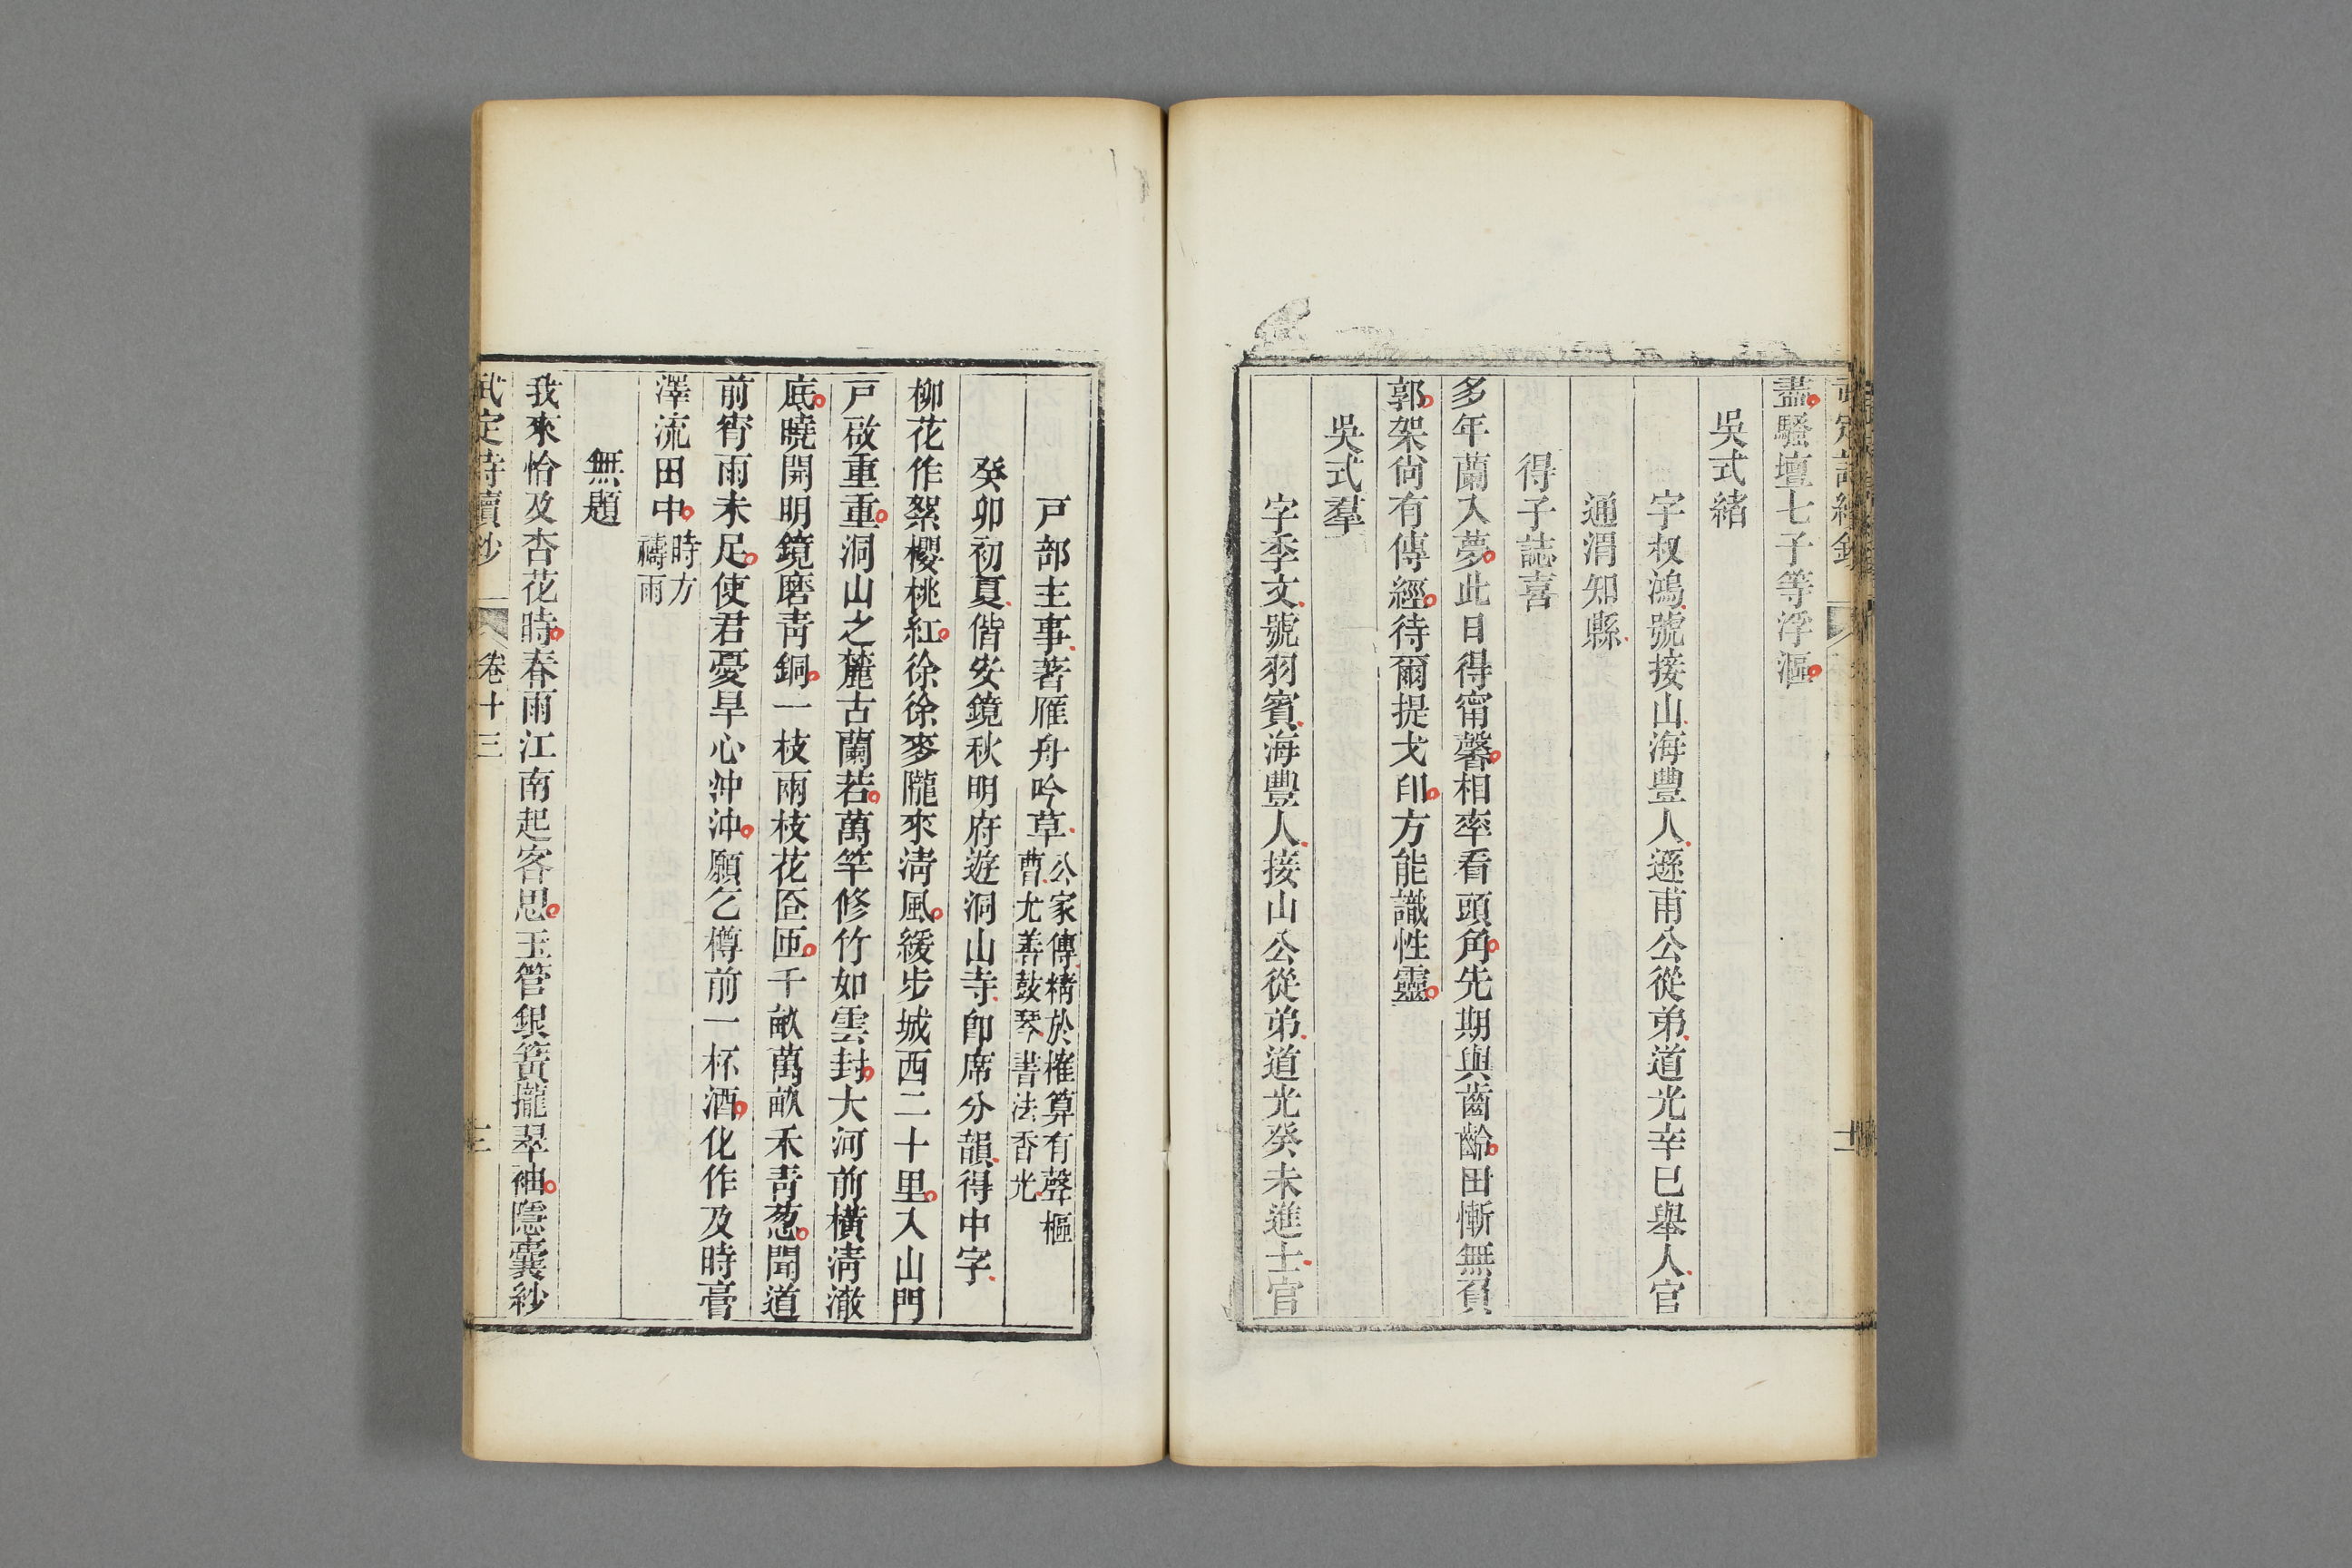 盡騷壇七子等浮漚
吳式緒
字叔鴻號接山海豐人遜甫公從弟道光辛巳舉人官
通渭知縣
得子誌喜
多年蘭入夢此日得甯馨相率看頭角先期與齒齡田慚無負
郭架尙有傳經待爾提戈印方能識性靈
吳式羣
字季文號羽賓海豐人接山公從弟道光癸未進士官
戸部主事著雁舟吟草公家傳精於榷算有聲樞
曹尤善鼓琴書法香光
癸卯初夏偕安鏡秋明府遊洞山寺卽席分韻得中字
柳花作絮櫻桃紅徐徐麥隴來淸風緩步城西二十里入山門
戸啟重重洞山之麓古蘭若萬竿修竹如雲封大河前橫淸澈
底曉開明鏡磨靑銅一枝兩枝花匼匝千畝萬畝禾靑葱聞道
前宵雨未足使君憂旱心沖沖願乞樽前一杯酒化作及時膏
澤流田中時方
禱雨
無題
我來恰及杏花時春雨江南起客思玉管銀簧攏翠袖隱囊紗
武定詩續鈔 卷十三